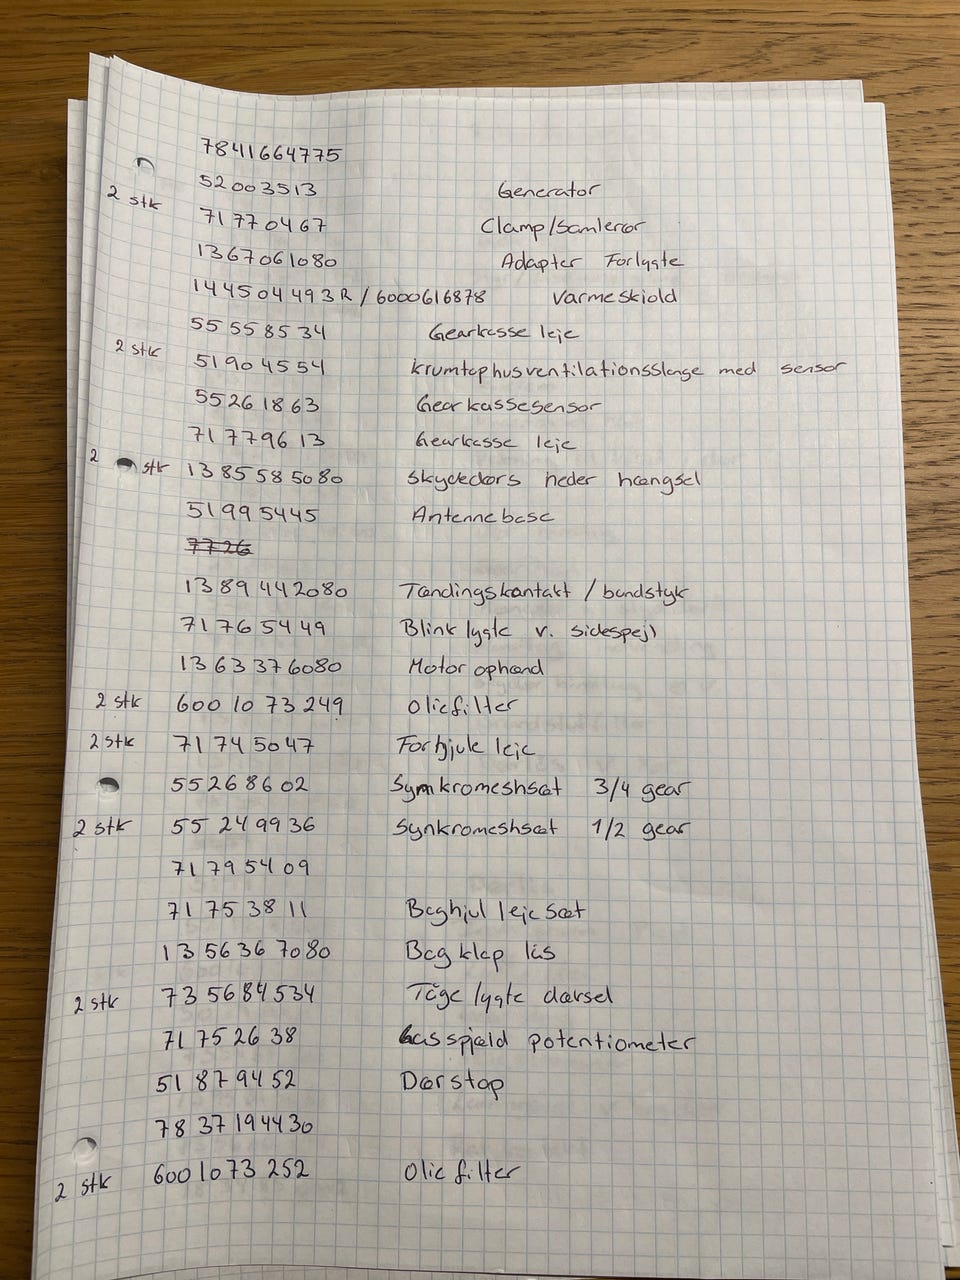 7841664775
52003513 Generator
2 stk 71770467 Clamp/Samlerør
1367061080 Adapter Forlygte
144504493R / 6000616878 Varmeskiold
55558534 Gearkasse leje
2 stk 51904554 krumtaphusventilationsslange med sensor
55261863 Gearkassesensor
71779613 Gearkasse leje
2 stk 1385585080 Skydedørs neder hængsel
51995445 Antennebase
7726
1389442080 Tændingskontakt / bundstyk
71765449 Blinklygte v. sidespejl
1363376080 Motorophænd
2 stk 6001073249 Oliefilter
2 stk 71745047 Forhjuls leje
55268602 Symkromeshsæt 3/4 gear
2 stk 55249936 Synkromeshsæt 1/2 gear
71795409
71753811 Baghjul lejesæt
1356367080 Bagklap lås
2 stk 735684534 Tågelygte dæksel
71752638 Gasspjæld potentiometer
51879452 Dørstop
7837194430
2 stk 6001073252 Oliefilter